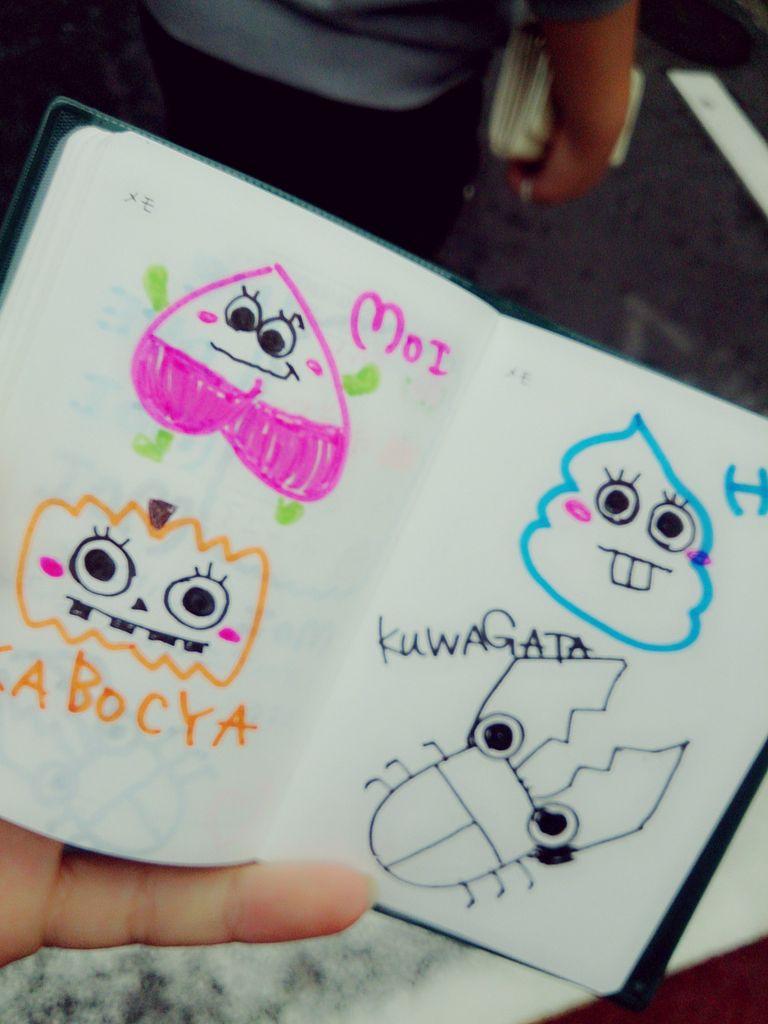 メモ
MOI
KABOCYA
メモ
H
KUWAGATA